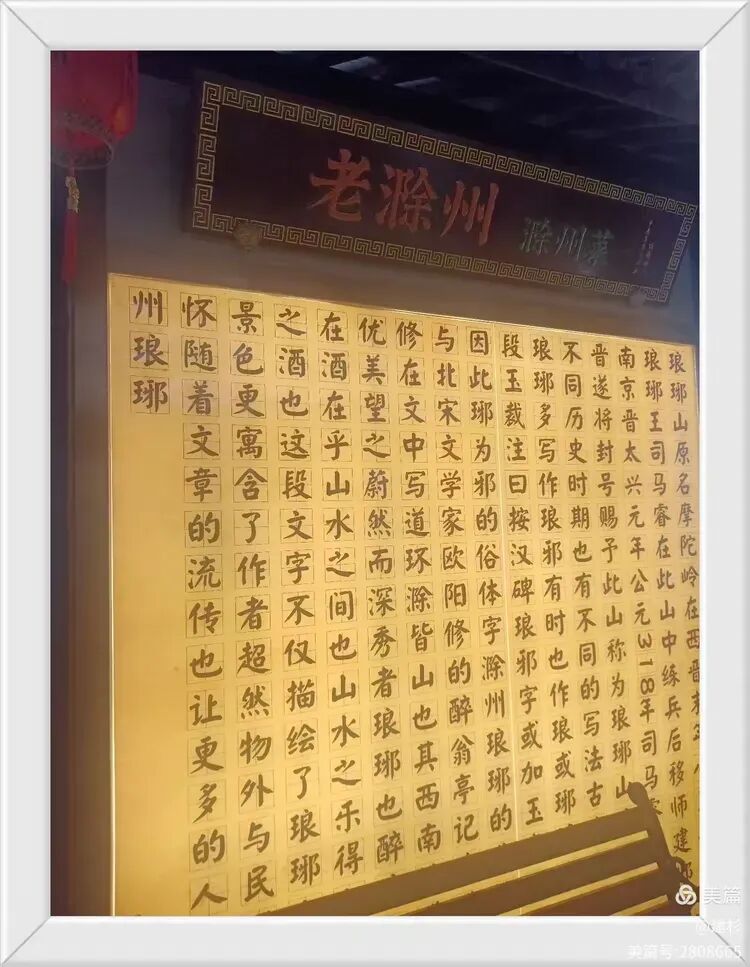 老滁州
滁州菜
琅琊山原名摩陀岭在西晋末年
琅琊王司马睿在此山中练兵后移师建
南京晋太兴元年公元318年司马
晋遂将封号赐予此山称为琅琊山
不同历史时期也有不同的写法古
琅琊多写作琅邪有时也作琅或琊
段玉裁注曰按汉碑琅邪字或加玉
因此琊为邪的俗体字滁州琅琊的
与北宋文学家欧阳修的醉翁亭记
修在文中写道环滁皆山也其西南
优美望之蔚然而深秀者琅琊也醉
在酒在乎山水之间也山水之乐得
之酒也这段文字不仅描绘了琅琊
景色更寓含了作者超然物外与民
怀随着文章的流传也让更多的人
州琅琊
美篇
美篇号:2808665